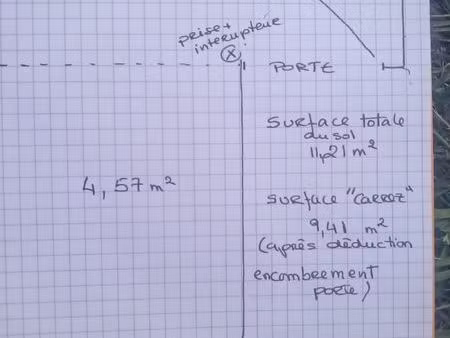 prise +
interrupteur
PORTE
Surface totale
du sol
11,21 m²
4,57 m²
surface "Carrez"
9,41 m²
(après déduction
encombrement
porte)